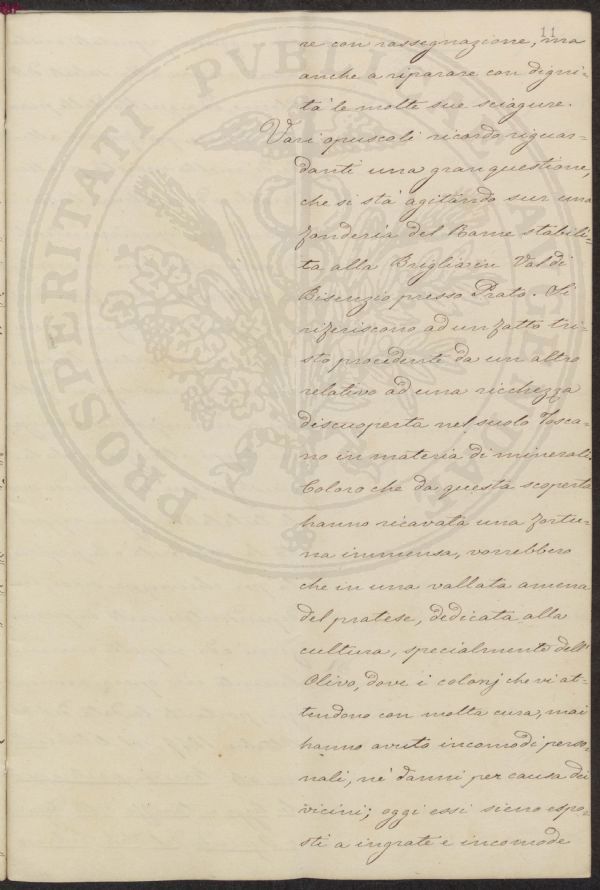 11
re con rassegnazione, ma
anche a riparare con digni-
tà le molte sue sciagure.
Vari opuscoli ricordo riguar-
danti una gran questione,
che si stà agitando sur una
fonderia del Rame stabili-
ta alla Briglia in Val di
Bisenzio presso Prato. Si
riferiscono ad un fatto tri-
sto procedente da un altro
relativo ad una ricchezza
discuoperta nel suolo Tosca-
no in materia di minerali.
Coloro che da questa scoperta
hanno ricavata una fortu-
na immensa, vorrebbero
che in una vallata amena
del pratese, dedicata alla
cultura, specialmente dell'
Olivo, dove i colonj che vi at-
tendono con molta cura, mai
hanno avuto incomodi perso-
nali, nè danni per causa dei
vicini; oggi essi sieno espo-
sti a ingrate e incomode
PROSPERITATI PVBLICAE